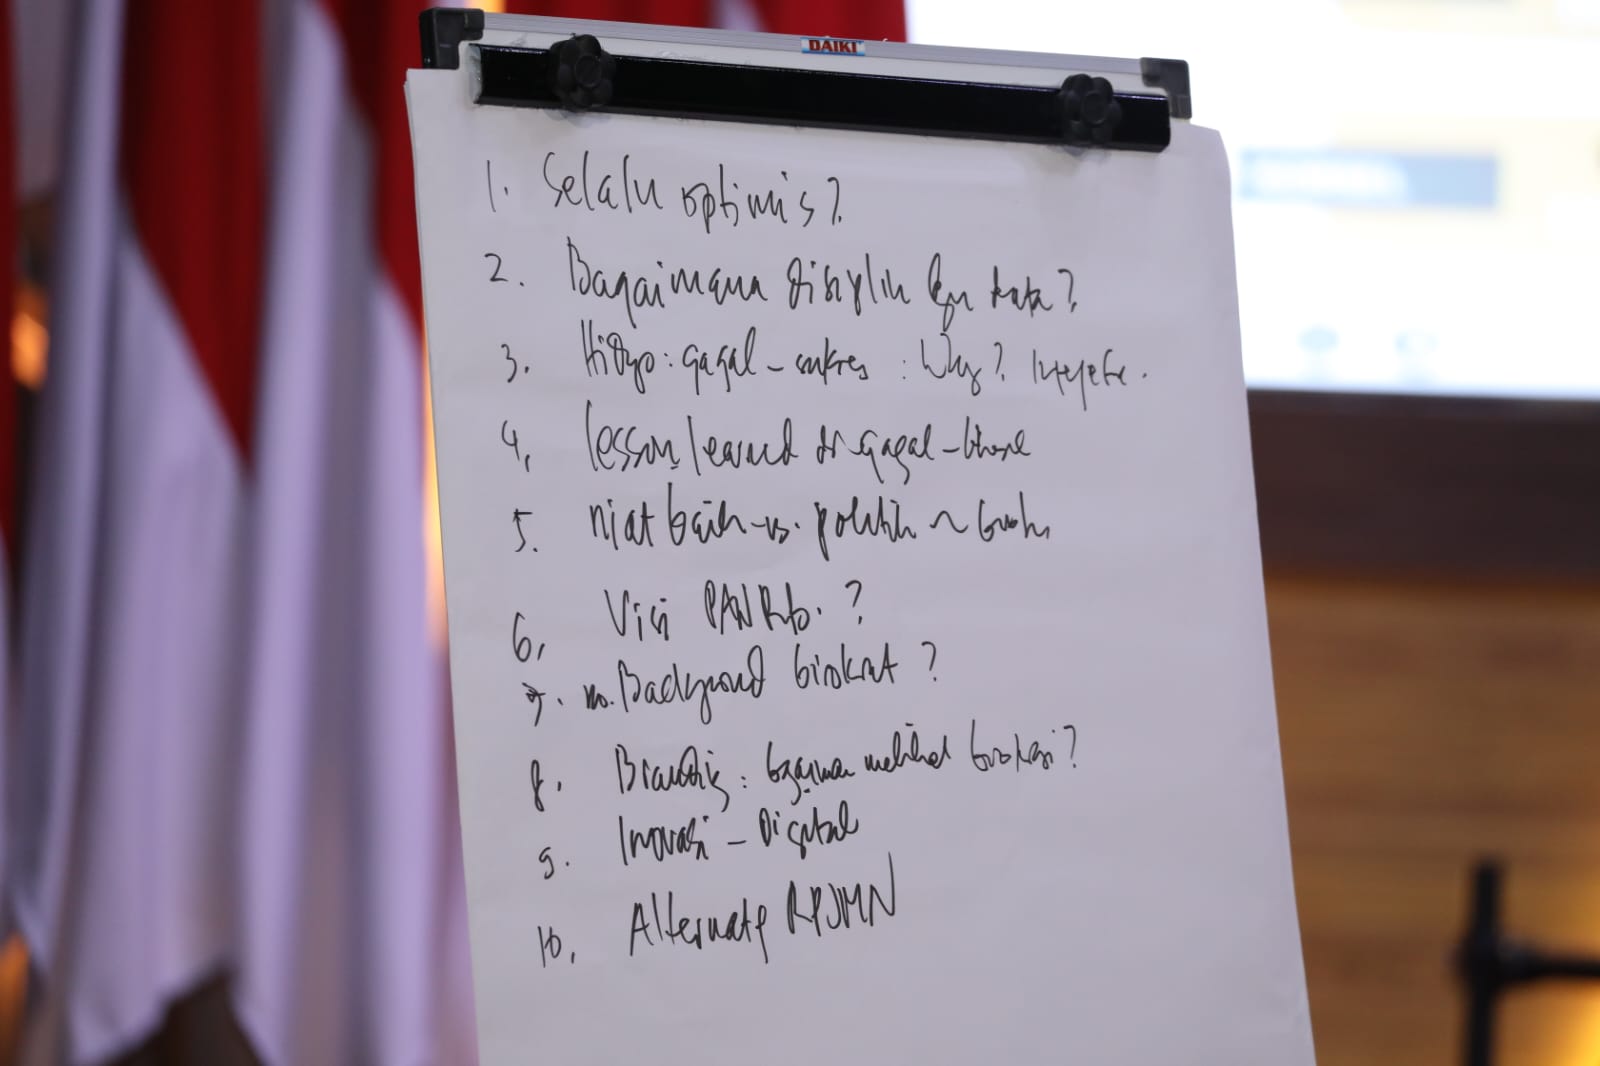 DAIKI
1. Selalu optimis?
2. Bagaimana disiplin dgn kata?
3. Hidup: gagal - sukses : Why?
4. lesson learned dr gagal -
5. niat baik vs. politik ~
6. Visi PANRB. ?
7. no. Background birokrat ?
8. Branding : bgaiman melihat birokrasi?
9. Inovasi - Digital
10. Alternatif RPJMN